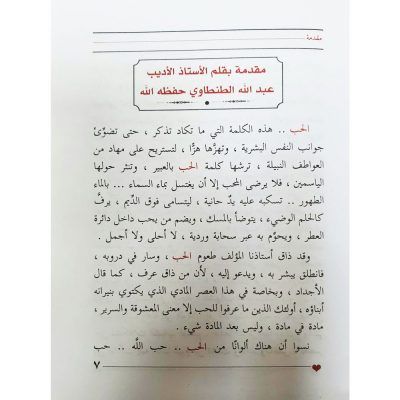 مقدمة
مقدمة بقلم الأستاذ الأديب
عبد الله الطنطاوي حفظه الله
الحب .. هذه الكلمة التي ما تكاد تذكر ، حتى تضوّئ
جوانب النفس البشرية ، وتهزّها هزًّا ، لتستريح على مهاد من
العواطف النبيلة ، ترشها كلمة الحب بالعبير ، وتنثر حولها
الياسمين ، فلا يرضى المحب إلا أن يغتسل بماء السماء ... بالماء
الطهور .. تسكبه عليه يدٌ حانية ، ليتسامى فوق الدِّيم ، يرفّ
كالحلم الوضيء ، يتوضأ بالمسك ، ويضم من يحب داخل دائرة
العطر ، ويحوّم به عبر سحابة وردية ، لا أحلى ولا أجمل .
وقد ذاق أستاذنا المؤلف طعوم الحب ، وسار في دروبه ،
فانطلق يبشر به ، ويدعو إليه ، لأن من ذاق عرف ، كما قال
الأجداد ، وبخاصة في هذا العصر المادي الذي يكتوي بنيرانه
أبناؤه ، أولئك الذين ما عرفوا للحب إلا معنى المعشوقة والسرير ،
مادة في مادة ، وليس بعد المادة شيء .
نسوا أن هناك ألوانًا من الحب .. حب اللَّه .. حب
٧